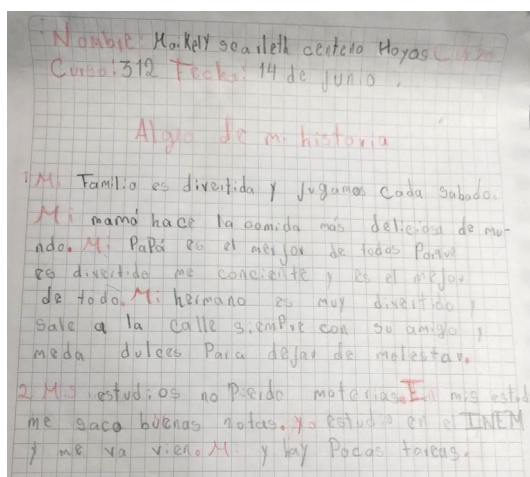 Nombre: Haikely scarleth centeno Hoyos Curso
Curso: 312 Fecha: 14 de Junio.
Algo de mi historia
1 Mi Familia es divertida y Jugamos Cada Sabado.
Mi mamá hace la comida más deliciosa de mu-
ndo. Mi PaPá es el mejor de todos Porque
es divertido me conciente y es el mejor
de todo. Mi hermano es muy divertido y
sale a la calle siemPre con su amigo y
meda dulces Para dejar de molestar.
2 Mis estudios no Pierdo materias. En mis estud
me saco buenas notas. yo estudio en el INEM
y me va vien. M. y hay Pocas tareas.